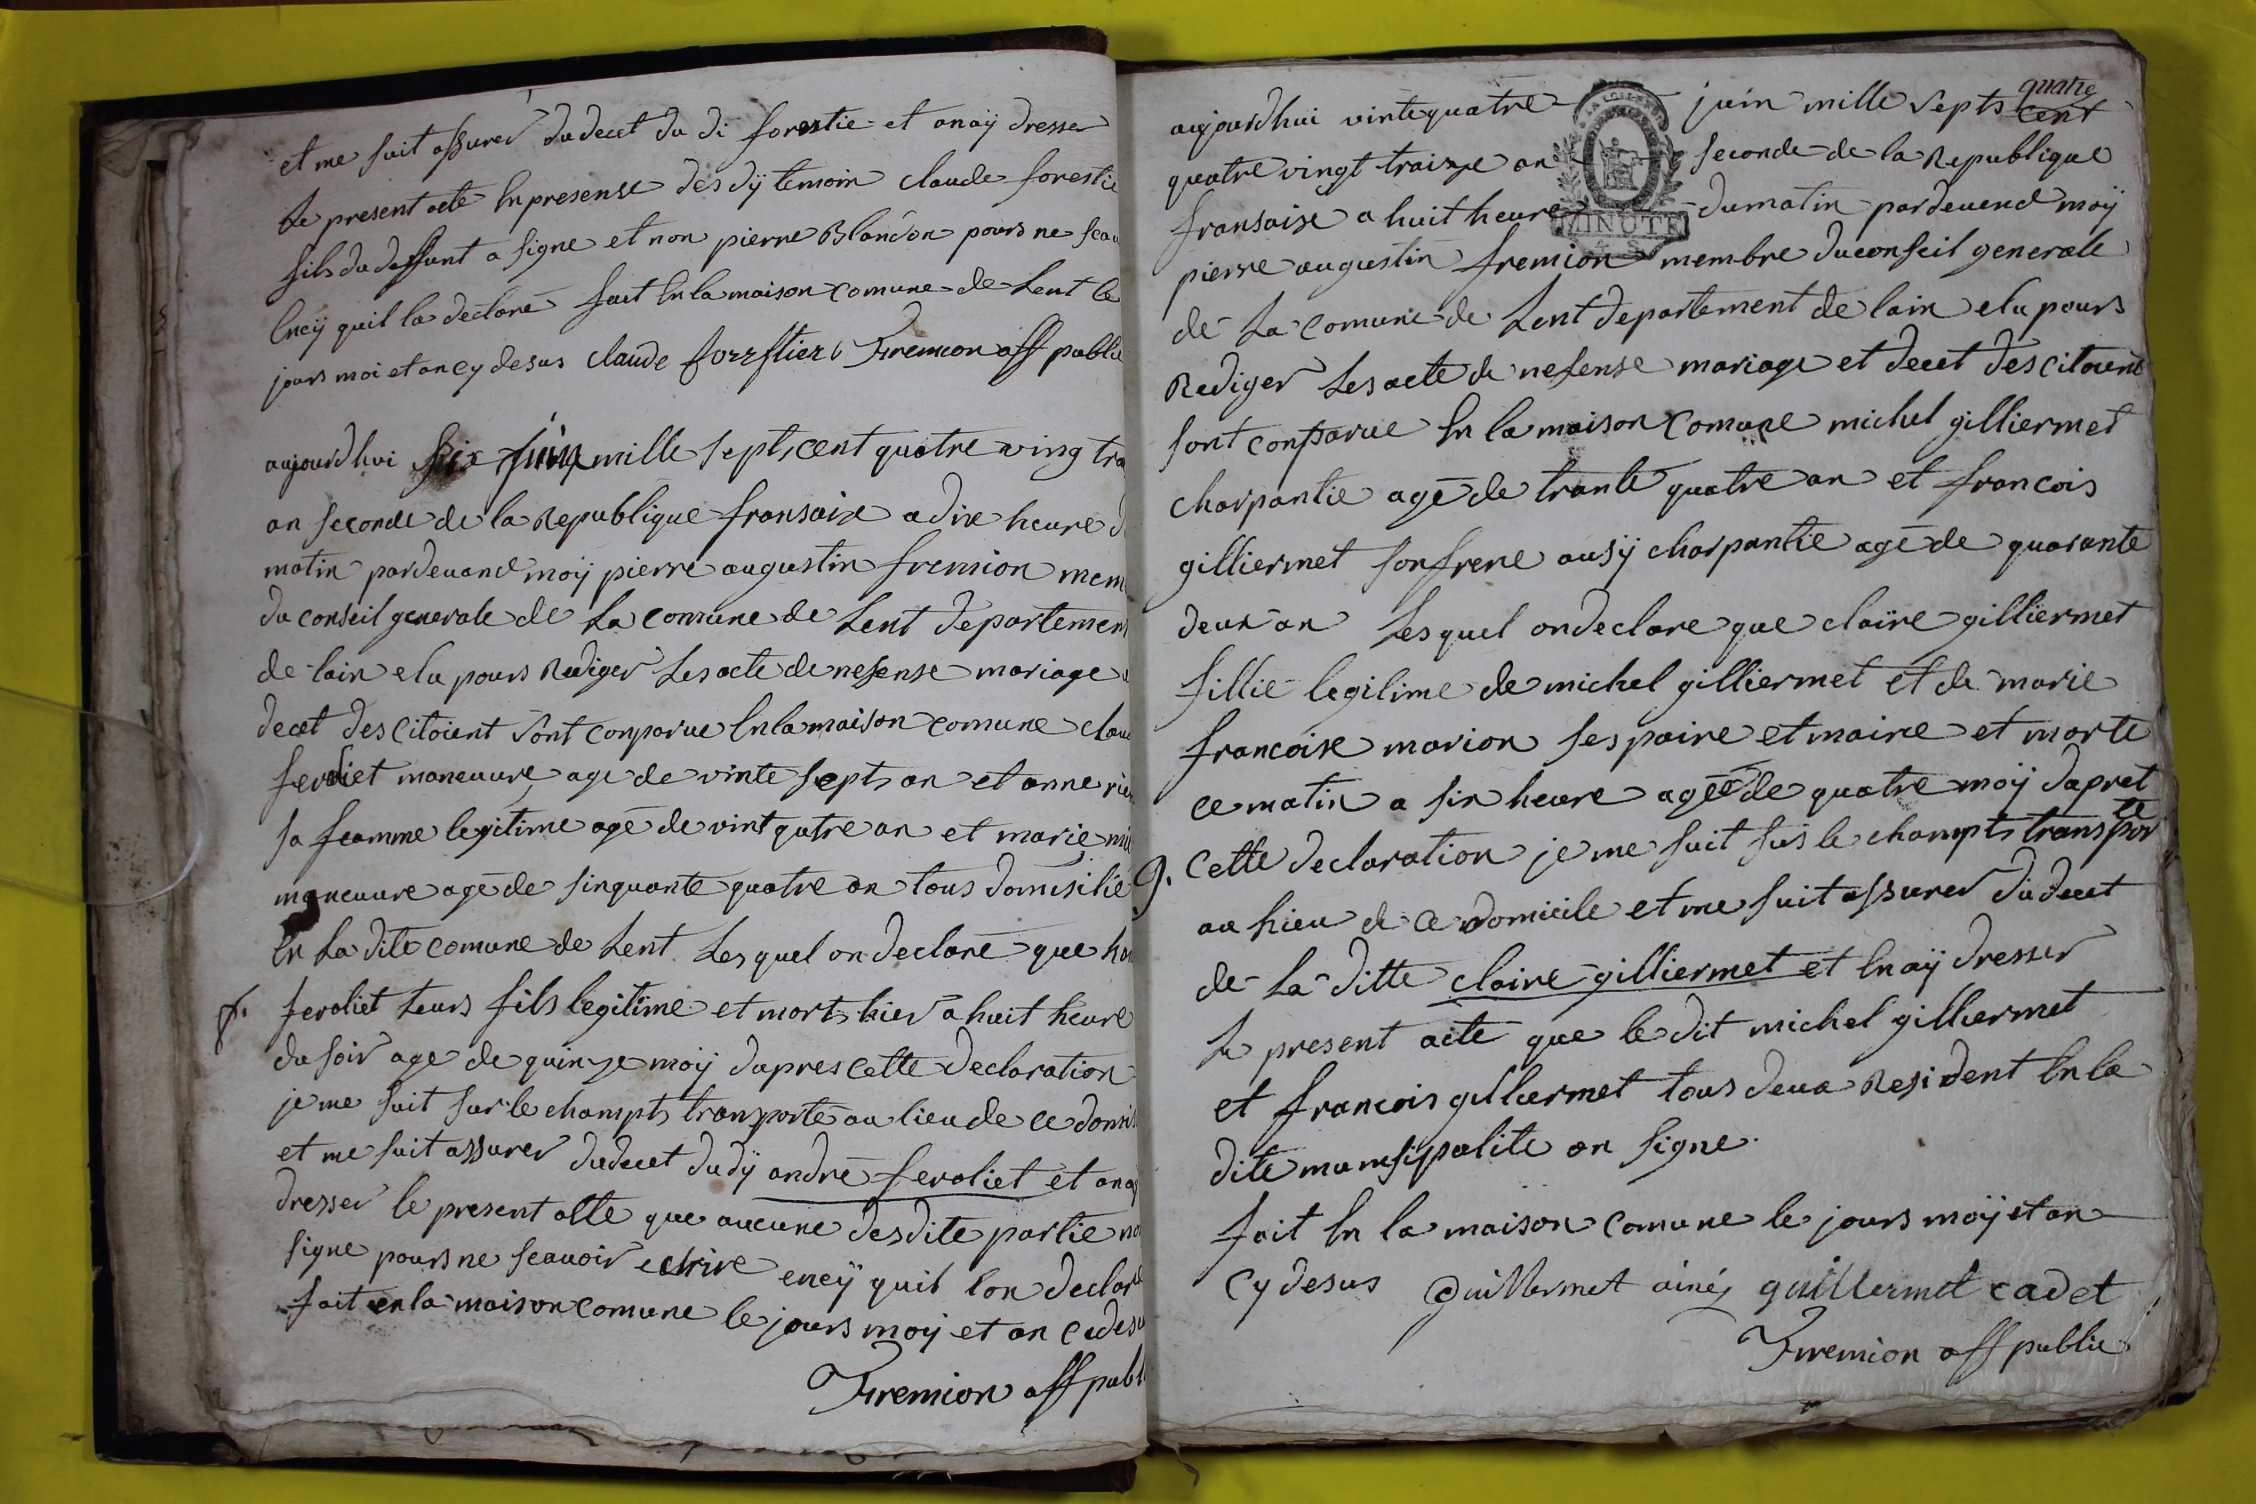 et me suit assurer du decet du di forestie et anaÿ dresser
Le present acte En presense des dÿ temoin claude forestie
fils du deffunt a signe et non pierre Blandon pours ne scau
Enciÿ quil la declare fait En la maison comune de Lent le
jours moi et an cy desus claude forrestier Fremion off public
aujourdhui six juin mille septs cent quatre ving tra
an seconde de la Republique fransaise a dix heure d
matin pardevand moÿ pierre augustin fremion mem
du conseil generale de La comune de Lent departement
de lain elu pours Rediger Les acte de nesense mariage
decet des citoient sont conparue En la maison comune clau
feroliet maneuvre age de vinte septs an et anne
sa feamme legitime age de vint qutre an et marie mi
maneuvre age de sinquante quatre an tous domisilie
En La dite comune de Lent Les quel on declare que
8. feroliet Leurs fils legitime et morts hier a huit heure
du soir age de quinze moÿ dapres cette declaration
je me suit sur le champts transporte au lieu de ce domis
et me suit assurer du decet du dÿ andre feroliet et ana
dresser le present atte que aucune des dite partie
signe pours ne scauoir ecrire enciÿ quil lon declar
fait en la maison comune le jours moÿ et an cides
Fremion off publ
aujourdhui vinte quatre juin mille septs quatre cent
MINUTE
quatre vingt traize an seconde de la Republique
fransaise a huit heure du matin pardevend moÿ
pierre augustin fremion membre du conseil generale
de La comune de Lent departement de lain elu pours
Rediger Les acte de nesense mariage et decet des citoient
sont conparue En la maison comune michel gilliermet
charpantie age de trante quatre an et francois
gilliermet son frere ausÿ charpantie age de quarante
deux an Les quel on declare que claire gilliermet
fillie legitime de michel gilliermet et de marie
francoise marion ses paire et maire et morte
ce matin a six heure agée de quatre moÿ dapret
9. cette declaration je me suit sus le champts transporte
au lieu de ce domicile et me suit assurer du decet
de La ditte claire gilliermet et En aÿ dresser
Le present acte que le dit michel gilliermet
et francois gilliermet tous deux Resident En la
dite munisipalite on signe.
fait En la maison comune le jours moÿ et an
cy desus Guillermet ainé guillermet cadet
Fremion off public